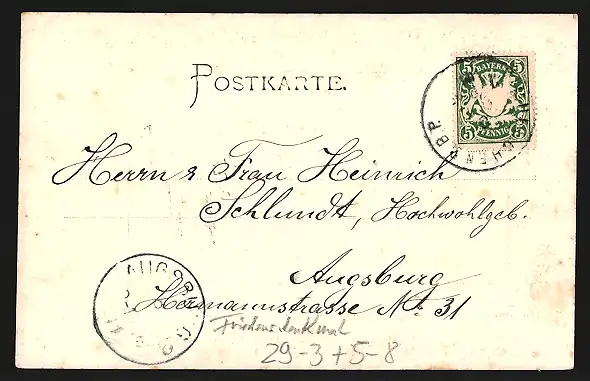 POSTKARTE.
5 BAYERN 5
5 PFENNIG 5
Herrn & Frau Heinrich
Schlundt, Hochwohlgeb.
Augsburg
Hermannstrasse No. 31
Friedensdenkmal
29-3+5-8